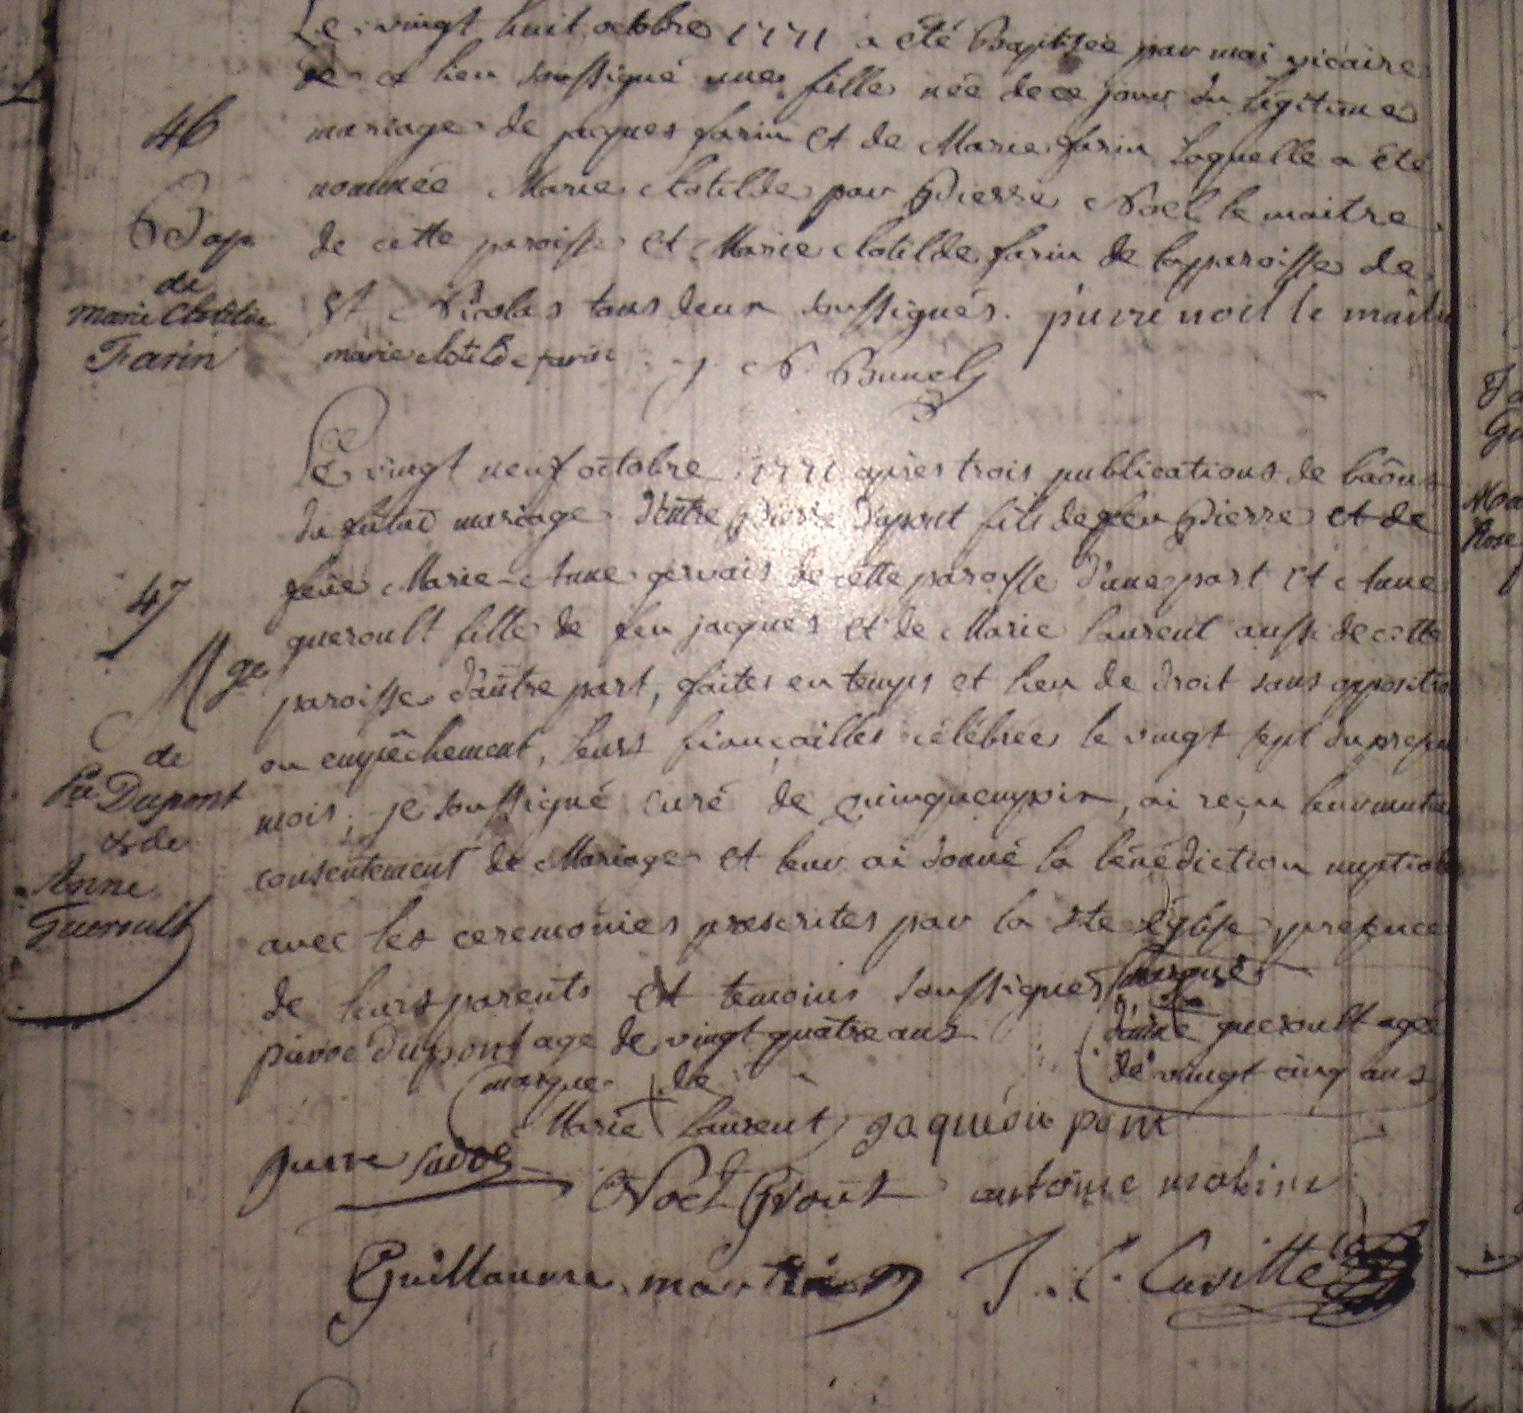 Le vingt huit octobre 1771 a été Baptisée par moi vicaire
de ce lieu soussigné une fille née de ce jour du légitime
46
mariage de jacques farin et de Marie farin laquelle a été
nommée Marie clotilde par Pierre Noel le maitre
Bap
de cette paroisse et Marie clotilde farin de la paroisse de
de
marie Clotilde
St Nicolas tous deux soussignés. pierre noel le maitre
Farin
marie clotilde farin
Le vingt neuf octobre 1771 après trois publications de
du futur mariage d'entre Pierre Dupont fils de feu Pierre et de
47
feüe Marie Anne gervais de cette paroisse d'une part et Anne
queroult fille de feu jacques et de Marie laurent aussi de cette
Mge
paroisse d'autre part, faites en temps et lieu de droit sans oppositio
de
ou empêchement, leurs fiançailles célébrées le vingt sept du
Pre Dupont
mois, je soussigné curé de quinquempoix, ai reçu leur mutu
& de
consentement de Mariage et leur ai donné la bénédiction nuptial
Anne
Gueroult
avec les ceremonies prescrites par la Ste église, presence
de leurs parents et temoins soussignes marque
pierre Dupont age de vingt quatre ans
d'anne gueroult agée
de vingt cinq ans
marque de
Marie laurent
pierre
Noel antoine
Guillaume martin J. C.